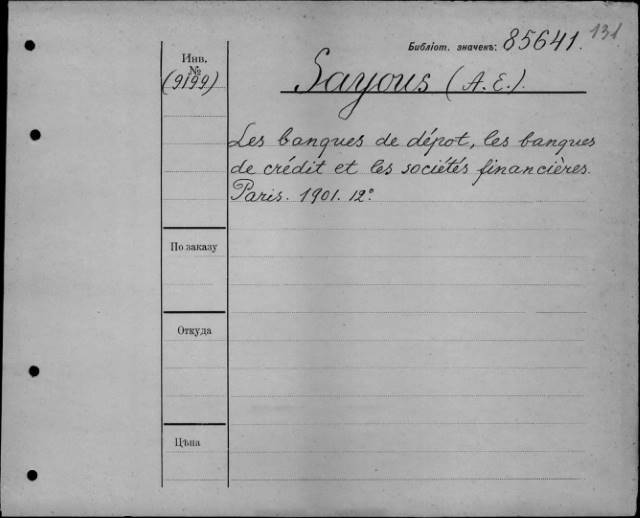 Библіот. значекъ: 85641. 131
Инв.
№
(9199)
Sayous (A. E.).
Les banques de dépot, les banques
de crédit et les sociétés financières.
Paris. 1901. 12°.
По заказу
Откуда
Цѣна